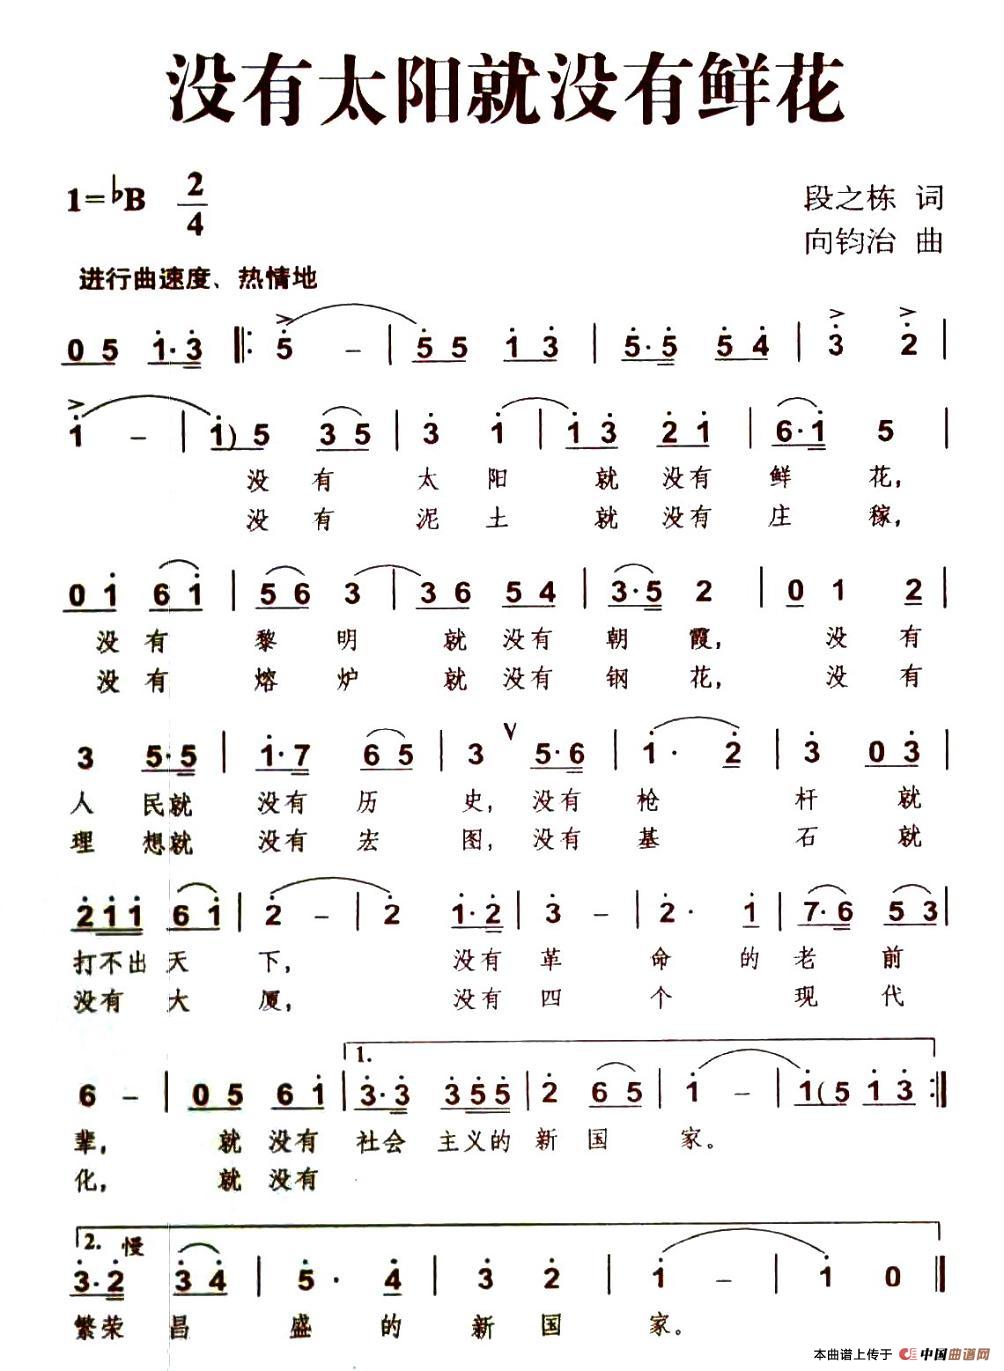 没有太阳就没有鲜花
1=♭B 2/4
段之栋 词
向钧治 曲
进行曲速度、热情地
0 5 1·3 ‖: 5 – | 5 5 1 3 | 5·5 5 4 | 3 2 |
1 – | 1) 5 3 5 | 3 1 | 1 3 2 1 | 6·1 5 |
没 有 太 阳 就 没有 鲜 花，
没 有 泥 土 就 没有 庄 稼，
0 1 6 1 | 5 6 3 | 3 6 5 4 | 3·5 2 | 0 1 2 |
没 有 黎 明 就 没有 朝 霞， 没 有
没 有 熔 炉 就 没有 钢 花， 没 有
3 5·5 | 1·7 6 5 | 3 V 5·6 | 1· 2 | 3 0 3 |
人 民就 没有 历 史，没有 枪 杆 就
理 想就 没有 宏 图，没有 基 石 就
2 1 1 6 1 | 2 – | 2 1·2 | 3 – | 2· 1 | 7·6 5 3 |
打不出 天 下， 没有 革 命 的 老 前
没有 大 厦， 没有 四 个 现 代
1.
6 – | 0 5 6 1 | 3·3 3 5 5 | 2 6 5 | 1 – | 1 (5 1 3 :‖
辈， 就 没有 社会 主义的 新 国 家。
化， 就 没有
2. 慢
3·2 3 4 | 5· 4 | 3 2 | 1 – | 1 0 ‖
繁荣 昌 盛 的 新 国 家。
本曲谱上传于 中国曲谱网